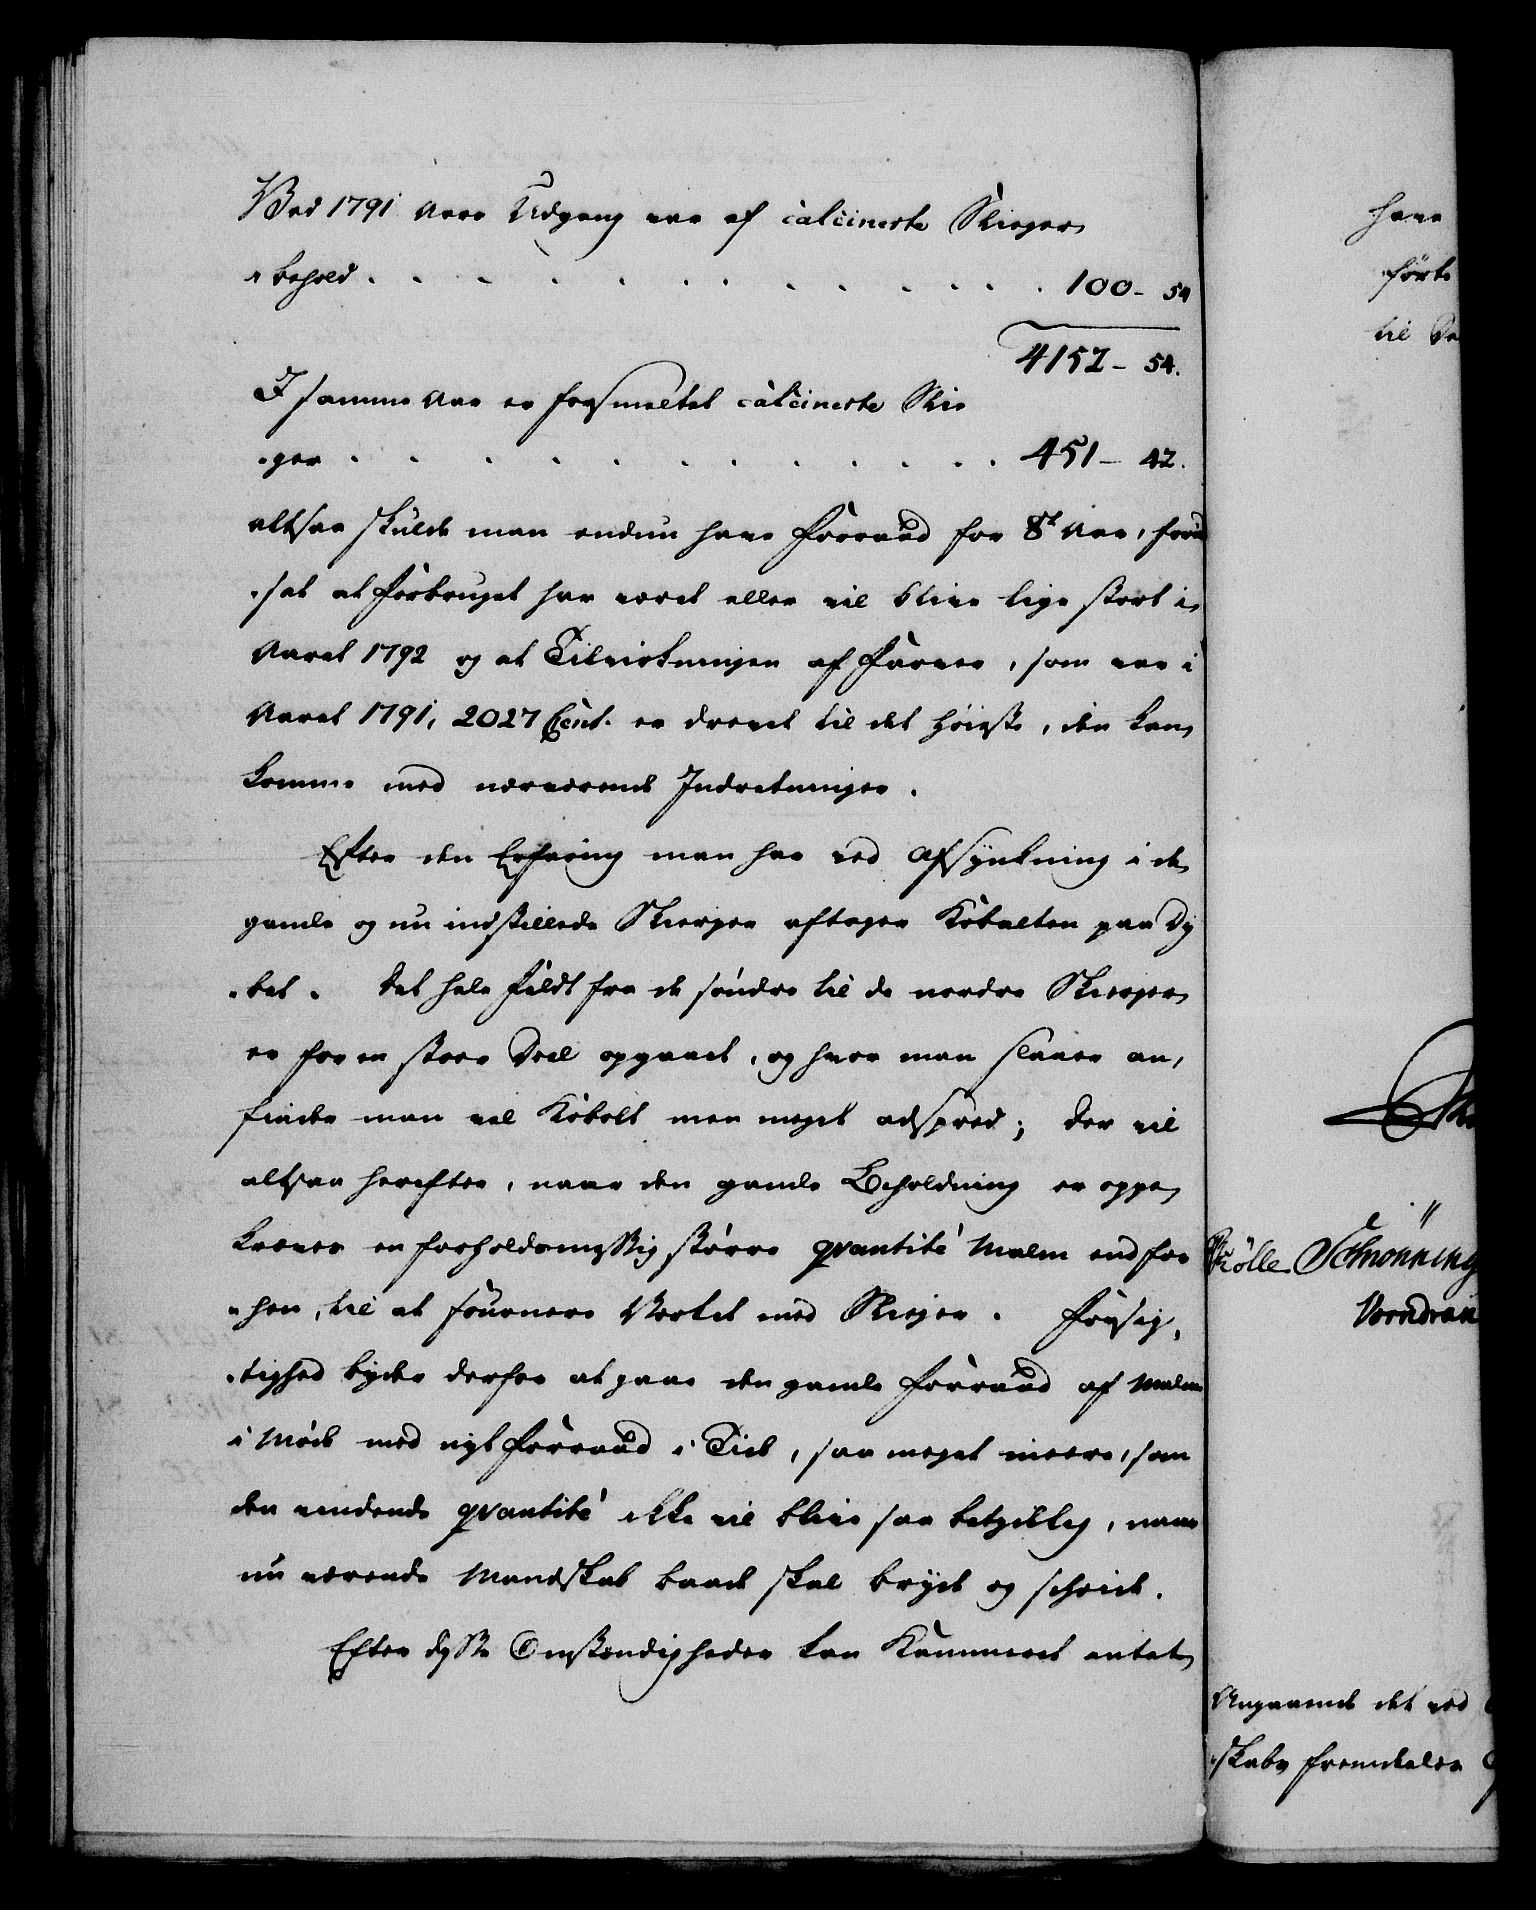 Ved 1791 Aars Udgang var af calcinerte Slieger
i behold . . . . . . . . . . . 100 - 54
4152 - 54.
I samme Aar er forsmeltet calcinerte Slie
-ger . . . . . . . . . . . 451 - 42.
altsaa skulde man endnu have Forraad for 8t Aar, forud
-sat at Forbruget har været eller vil blive lige stort i
Aaret 1792 og at Tilvirkningen af Farver, som var i
Aaret 1791, 2027 Cent. er drevet til det høieste, den kan
komme med nærværende Indretninger.
Efter den Erfaring man har ved Afsynkning i de
gamle og nu indstillede Skierper aftager Kobolten paa Dy
-bet. Det hele Feldt fra de søndre til de nordre Skierper
er for en stoer Deel opgaaet, og hvor man slaaer an,
finder man vel Kobolt men meget adspred; der vil
altsaa herefter, naar den gamle Beholdning er oppe
kræves en forholdsmessig større qvantité Malm end for
-hen, til at fournere Værket med Slieger. Forsig,
-tighed byder derfor at gaae den gamle Forraad af Malm
i Møde med nyt Forraad i Tide, saa meget meere, som
den vindende qvantité ikke vil blive saa betydelig, naar
nu værende Mandskab baade skal bryde og scheide.
Efter disse Omstændigheder kan Kammeret antate
have
førte
til
Schrönning
Vorndran
Angaaende det ved
-skabs fremdeles